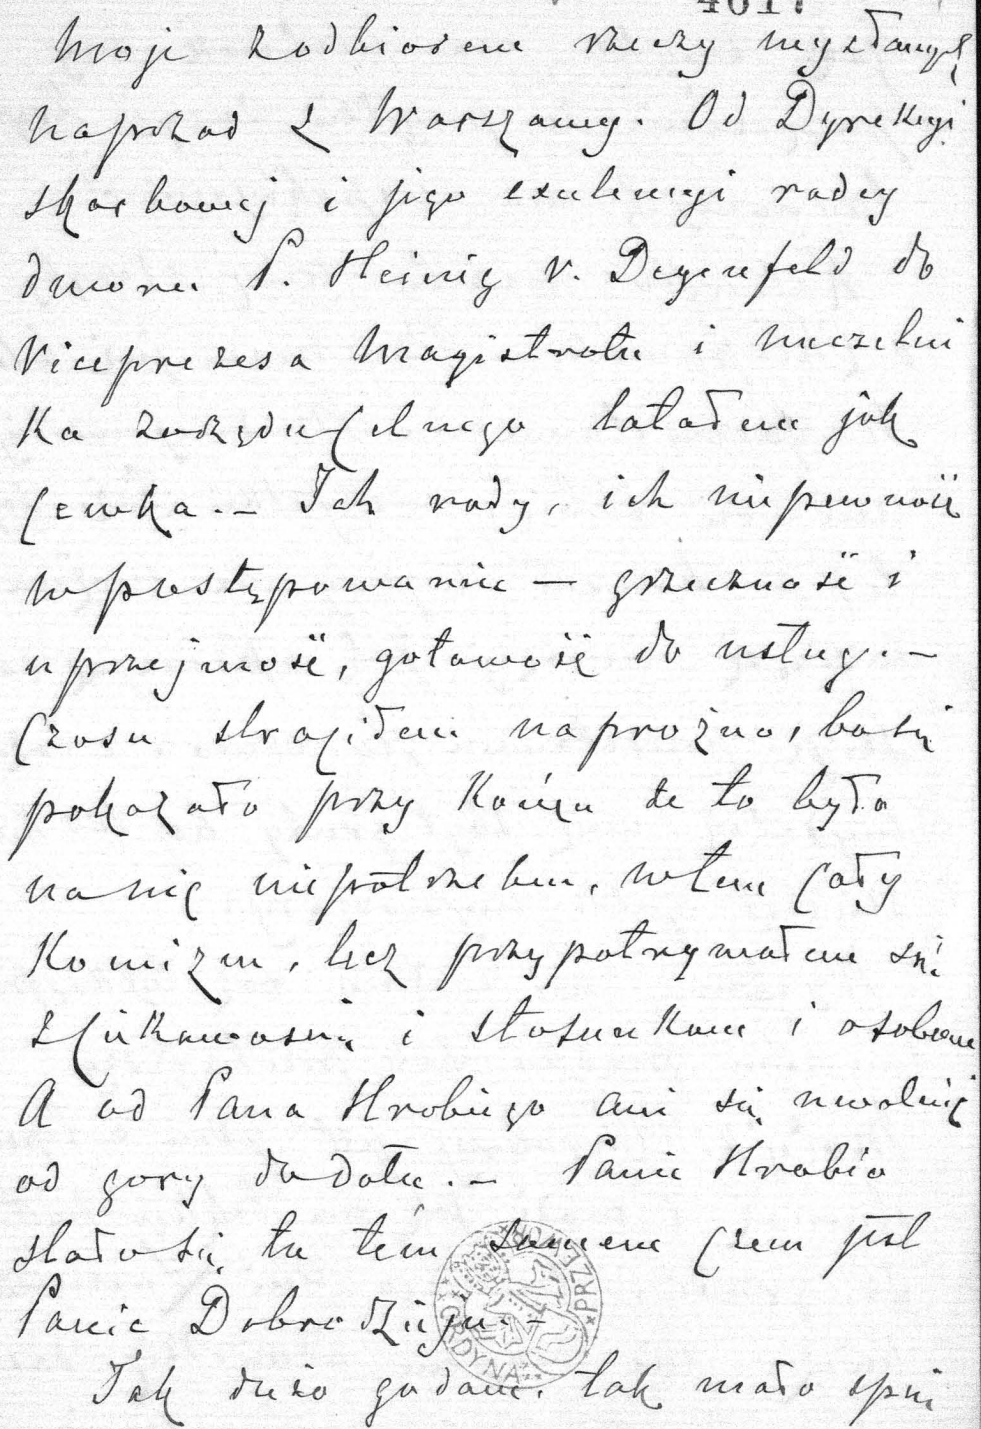 4617
moje z odbiorem rzeczy wysłanych
naprzod z Warszawy. Od Dyrekcyi
skarbowej i jego exulencyi radcy
dworu P. Heinig v. Degenfeld do
Viceprezesa Magistratu i naczelni
ka zarządu celnego latałem jak
cewka. – Ich rady, ich niepewność
w postępowanie – grzeczność i
uprzejmość, gotowość do usług. –
Czasu straciłem naprożno, bo się
pokazało przy końcu że to było
na nic niepotrzebne, w tem cały
Komizm, lecz przypatrywałem się
z ciekawością i stosunkom i osobom
A od Pana Hrabiego ani się uwolnić
od gory do dołu. – Panie Hrabio
stało się tu tém samem czem jest
Panie Dobrodzieju. –
Tak dużo gadam, tak mało spię
PRZEZ
ORDYNA